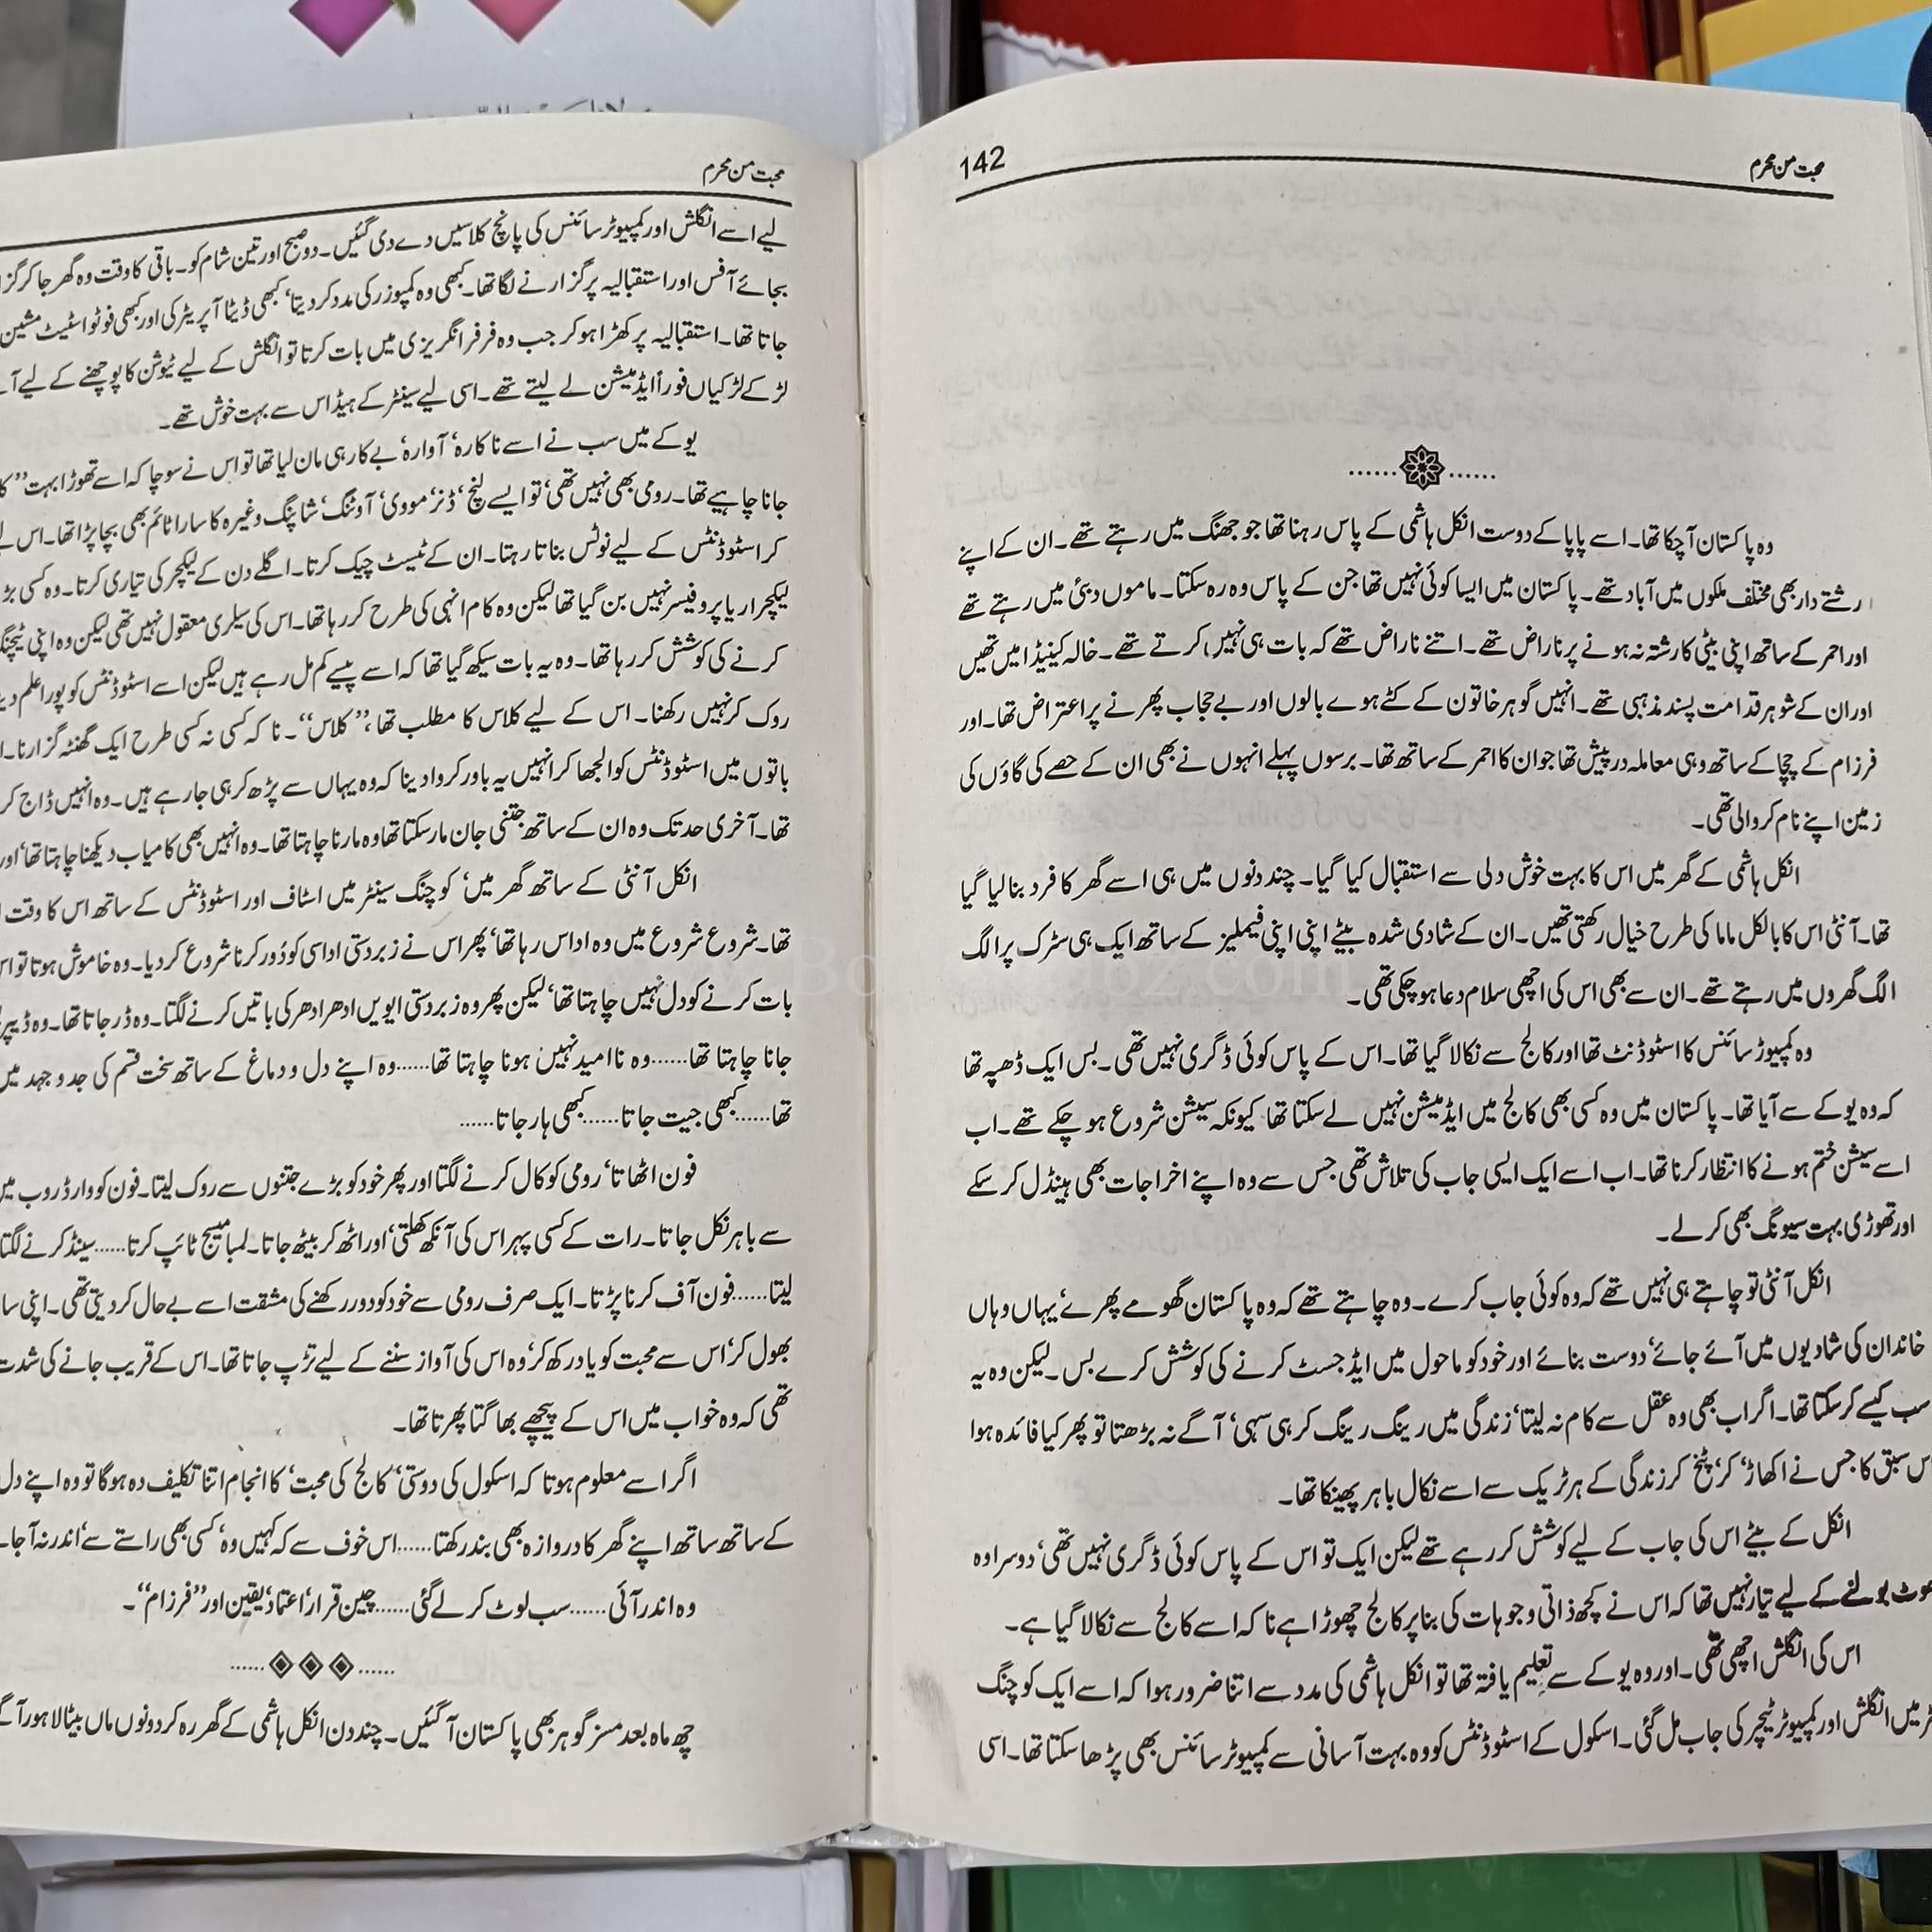 محبت من محرم
142
وہ پاکستان آچکا تھا۔ اسے پاپا کے دوست انکل ہاشمی کے پاس رہنا تھا جو جھنگ میں رہتے تھے۔ ان کے اپنے
رشتے دار بھی مختلف ملکوں میں آباد تھے۔ پاکستان میں ایسا کوئی نہیں تھا جن کے پاس وہ رہ سکتا۔ ماموں دبئی میں رہتے تھے
اور احمر کے ساتھ اپنی بیٹی کا رشتہ نہ ہونے پر ناراض تھے۔ اتنے ناراض تھے کہ بات ہی نہیں کرتے تھے۔ خالہ کینیڈا میں تھیں
اور ان کے شوہر قدامت پسند مذہبی تھے۔ انہیں گوہر خاتون کے کٹے ہوے بالوں اور بے حجاب پھرنے پر اعتراض تھا۔ اور
فرزام کے چچا کے ساتھ وہی معاملہ درپیش تھا جو ان کا احمر کے ساتھ تھا۔ برسوں پہلے انہوں نے بھی ان کے حصے کی گاؤں کی
زمین اپنے نام کروالی تھی۔
انکل ہاشمی کے گھر میں اس کا بہت خوش دلی سے استقبال کیا گیا۔ چند دنوں میں ہی اسے گھر کا فرد بنا لیا گیا
تھا۔ آنٹی اس کا بالکل ماما کی طرح خیال رکھتی تھیں۔ ان کے شادی شدہ بیٹے اپنی اپنی فیملیز کے ساتھ ایک ہی سڑک پر الگ
الگ گھروں میں رہتے تھے۔ ان سے بھی اس کی اچھی سلام دعا ہو چکی تھی۔
وہ کمپیوٹر سائنس کا اسٹوڈنٹ تھا اور کالج سے نکالا گیا تھا۔ اس کے پاس کوئی ڈگری نہیں تھی۔ بس ایک ڈھپہ تھا
کہ وہ یو کے سے آیا تھا۔ پاکستان میں وہ کسی بھی کالج میں ایڈمیشن نہیں لے سکتا تھا کیونکہ سیشن شروع ہو چکے تھے۔ اب
اسے سیشن ختم ہونے کا انتظار کرنا تھا۔ اب اسے ایک ایسی جاب کی تلاش تھی جس سے وہ اپنے اخراجات بھی ہینڈل کر سکے
اور تھوڑی بہت سیونگ بھی کر لے۔
انکل آنٹی تو چاہتے ہی نہیں تھے کہ وہ کوئی جاب کرے۔ وہ چاہتے تھے کہ وہ پاکستان گھومے پھرے‘ یہاں وہاں
خاندان کی شادیوں میں آئے جائے‘ دوست بنائے اور خود کو ماحول میں ایڈجسٹ کرنے کی کوشش کرے بس۔ لیکن وہ یہ
سب کیسے کر سکتا تھا۔ اگر اب بھی وہ عقل سے کام نہ لیتا‘ زندگی میں رینگ رینگ کر ہی سہی‘ آگے نہ بڑھتا تو پھر کیا فائدہ ہوا
سبق کا جس نے اکھاڑ‘ کر‘ پٹخ کر زندگی کے ہر ٹریک سے اسے نکال باہر پھینکا تھا۔
انکل کے بیٹے اس کی جاب کے لیے کوشش کر رہے تھے لیکن ایک تو اس کے پاس کوئی ڈگری نہیں تھی‘ دوسرا وہ
بولنے کے لیے تیار نہیں تھا کہ اس نے کچھ ذاتی وجوہات کی بنا پر کالج چھوڑا ہے نا کہ اسے کالج سے نکالا گیا ہے۔
اس کی انگلش اچھی تھی۔ اور وہ یو کے سے تعلیم یافتہ تھا تو انکل ہاشمی کی مدد سے اتنا ضرور ہوا کہ اسے ایک کوچنگ
میں انگلش اور کمپیوٹر ٹیچر کی جاب مل گئی۔ اسکول کے اسٹوڈنٹس کو وہ بہت آسانی سے کمپیوٹر سائنس بھی پڑھا سکتا تھا۔ اسی
محبت من محرم
لیے اسے انگلش اور کمپیوٹر سائنس کی پانچ کلاسیں دے دی گئیں۔ دو صبح اور تین شام کو۔ باقی کا وقت وہ گھر جا کر
بجائے آفس اور استقبالیہ پر گزارنے لگا تھا۔ کبھی وہ کمپوزر کی مدد کر دیتا‘ کبھی ڈیٹا آپریٹر کی اور کبھی فوٹو اسٹیٹ مشین
جاتا تھا۔ استقبالیہ پر کھڑا ہو کر جب وہ فرفر انگریزی میں بات کرتا تو انگلش کے لیے ٹیوشن کا پوچھنے کے لیے
لڑکے لڑکیاں فوراً ایڈمیشن لے لیتے تھے۔ اسی لیے سینٹر کے ہیڈ اس سے بہت خوش تھے۔
یو کے میں سب نے اسے ناکارہ‘ آوارہ‘ بے کار ہی مان لیا تھا تو اس نے سوچا کہ اسے تھوڑا بہت’’
جانا چاہیے تھا۔ رومی بھی نہیں تھی‘ تو ایسے لنچ‘ ڈنر‘ مووی‘ آوٹنگ‘ شاپنگ وغیرہ کا سارا ٹائم بھی بچا پڑا تھا۔ اس
کر اسٹوڈنٹس کے لیے نوٹس بناتا رہتا۔ ان کے ٹیسٹ چیک کرتا۔ اگلے دن کے لیکچر کی تیاری کرتا۔ وہ کسی
لیکچرار یا پروفیسر نہیں بن گیا تھا لیکن وہ کام انہی کی طرح کر رہا تھا۔ اس کی سیلری معقول نہیں تھی لیکن وہ اپنی
کرنے کی کوشش کر رہا تھا۔ وہ یہ بات سیکھ گیا تھا کہ اسے پیسے کم مل رہے ہیں لیکن اسے اسٹوڈنٹس کو پورا علم
روک کر نہیں رکھنا۔ اس کے لیے کلاس کا مطلب تھا ،’’کلاس‘‘۔ نا کہ کسی نہ کسی طرح ایک گھنٹہ گزارنا۔
باتوں میں اسٹوڈنٹس کو الجھا کر انہیں یہ باور کروا دینا کہ وہ یہاں سے پڑھ کر ہی جا رہے ہیں۔ وہ انہیں ڈاج
تھا۔ آخری حد تک وہ ان کے ساتھ جتنی جان مار سکتا تھا وہ مارنا چاہتا تھا۔ وہ انہیں بھی کامیاب دیکھنا چاہتا تھا‘ اور
انکل آنٹی کے ساتھ گھر میں‘ کوچنگ سینٹر میں اسٹاف اور اسٹوڈنٹس کے ساتھ اس کا وقت
تھا۔ شروع شروع میں وہ اداس رہا تھا‘ پھر اس نے زبردستی اداسی کو دُور کرنا شروع کر دیا۔ وہ خاموش ہوتا تو
بات کرنے کو دل نہیں چاہتا تھا‘ لیکن پھر وہ زبردستی ایویں ادھر ادھر کی باتیں کرنے لگتا۔ وہ ڈر جاتا تھا۔ وہ
جانا چاہتا تھا......وہ نا امید نہیں ہونا چاہتا تھا......وہ اپنے دل و دماغ کے ساتھ سخت قسم کی جدوجہد میں
تھا......کبھی جیت جاتا......کبھی ہار جاتا......
فون اٹھاتا‘ رومی کو کال کرنے لگتا اور پھر خود کو بڑے جتنوں سے روک لیتا۔ فون کو وارڈروب میں
سے باہر نکل جاتا۔ رات کے کسی پہر اس کی آنکھ کھلتی‘ اور اٹھ کر بیٹھ جاتا۔ لمبا میسج ٹائپ کرتا......سینڈ کرنے لگتا
لیتا......فون آف کرنا پڑتا۔ ایک صرف رومی سے خود کو دور رکھنے کی مشقت اسے بے حال کر دیتی تھی۔ اپنی
بھول کر‘ اس سے محبت کو یاد رکھ کر‘ وہ اس کی آواز سننے کے لیے تڑپ جاتا تھا۔ اس کے قریب جانے کی شدت
تھی کہ وہ خواب میں اس کے پیچھے بھاگتا پھرتا تھا۔
اگر اسے معلوم ہوتا کہ اسکول کی دوستی‘ کالج کی محبت‘ کا انجام اتنا تکلیف دہ ہوگا تو وہ اپنے دل
کے ساتھ ساتھ اپنے گھر کا دروازہ بھی بند رکھتا......اس خوف سے کہ کہیں وہ‘ کسی بھی راستے سے‘ اندر نہ
وہ اندر آئی......سب لوٹ کر لے گئی......چین قرار‘ اعتماد‘ یقین اور ’’فرزام‘‘۔
چھ ماہ بعد مسز گوہر بھی پاکستان آ گئیں۔ چند دن انکل ہاشمی کے گھر رہ کر دونوں ماں بیٹا لاہور